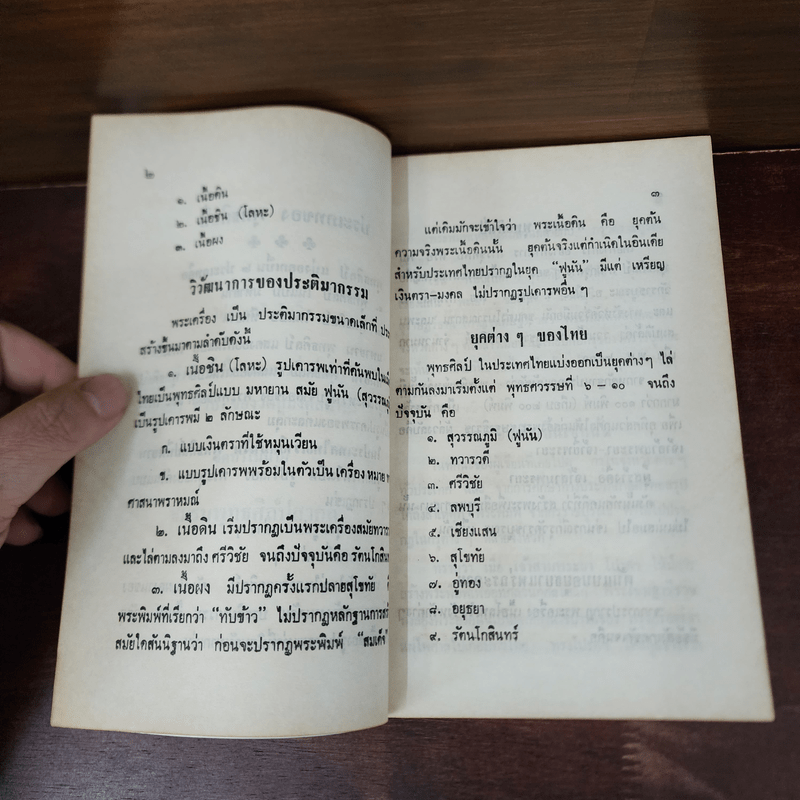 ๒
๑. เนื้อดิน
๒. เนื้อชิน (โลหะ)
๓. เนื้อผง
วิวัฒนาการของประติมากรรม
พระเครื่อง เป็น ประติมากรรมขนาดเล็กที่
สร้างขึ้นมาตามลำดับดังนี้
๑. เนื้อชิน (โลหะ) รูปเคารพเท่าที่ค้นพบใน
ไทยเป็นพุทธศิลป์แบบ มหายาน สมัย ฟูนัน (สุวรรณภู
เป็นรูปเคารพมี ๒ ลักษณะ
ก. แบบเงินตราที่ใช้หมุนเวียน
ข. แบบรูปเคารพพร้อมในตัวเป็น เครื่อง หมาย
ศาสนาพราหมณ์
๒. เนื้อดิน เริ่มปรากฏเป็นพระเครื่องสมัยทวาร
และไล่ตามลงมาถึง ศรีวิชัย จนถึงปัจจุบันคือ รัตนโกสิน
๓. เนื้อผง มีปรากฏครั้งแรกปลายสุโขทัย
พระพิมพ์ที่เรียกว่า "ทับข้าว" ไม่ปรากฏหลักฐานการสร้
สมัยใดสันนิฐานว่า ก่อนจะปรากฏพระพิมพ์ "สมเด็จ
๓
แต่เดิมมักจะเข้าใจว่า พระเนื้อดิน คือ ยุคต้น
ความจริงพระเนื้อดินนั้น ยุคต้นจริงแต่กำเนิดในอินเดีย
สำหรับประเทศไทยปรากฏในยุค "ฟูนัน" มีแต่ เหรียญ
เงินตรา—มงคล ไม่ปรากฏรูปเคารพอื่น ๆ
ยุคต่าง ๆ ของไทย
พุทธศิลป์ ในประเทศไทยแบ่งออกเป็นยุคต่างๆ ไล่
ตามกันลงมาเริ่มตั้งแต่ พุทธศวรรษที่ ๖ – ๑๐ จนถึง
ปัจจุบัน คือ
๑. สุวรรณภูมิ (ฟูนัน)
๒. ทวารวดี
๓. ศรีวิชัย
๔. ลพบุรี
๕. เชียงแสน
๖. สุโขทัย
๗. อู่ทอง
๘. อยุธยา
๙. รัตนโกสินทร์